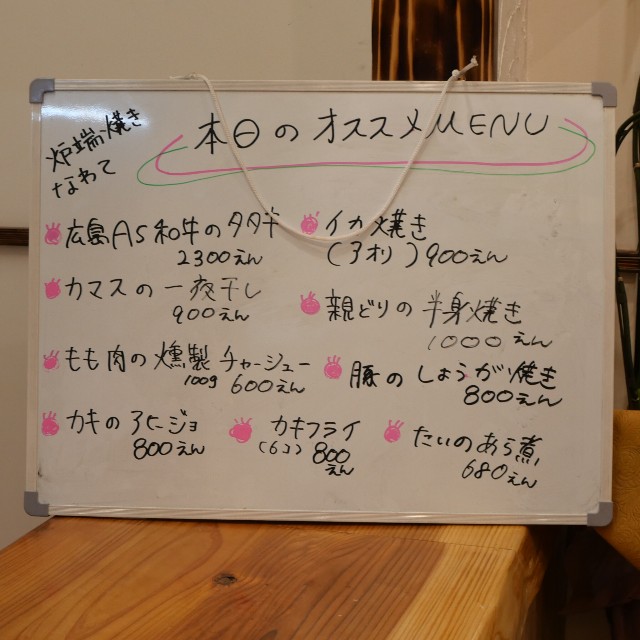 炉端焼き
なわて
本日のオススメMENU
広島A5和牛のタタキ
2300えん
イカ焼き
(アオリ)900えん
カマスの一夜干し
900えん
親どりの半身焼き
1000えん
もも肉の燻製チャーシュー
100g 600えん
豚のしょうが焼き
800えん
カキのアヒージョ
800えん
カキフライ
(6コ) 800
えん
たいのあら煮
680えん